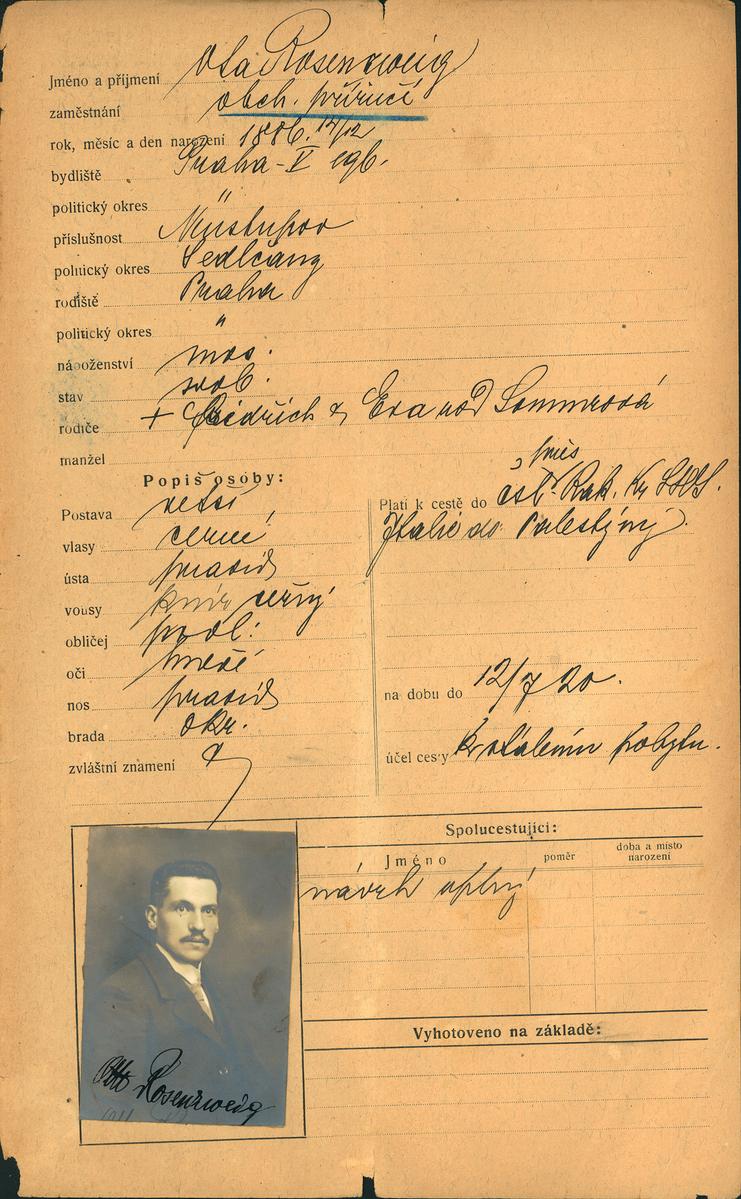 Jméno a příjmení Ota Rosenzweig
zaměstnání obch. příručí
rok, měsíc a den narození 1886. 12/12
bydliště Praha-V
politický okres "
příslušnost
politický okres Sedlčany
rodiště Praha
politický okres "
náboženství mos.
stav svob.
rodiče + Bedřich & Eva roz Sommrová
manžel
Popis osoby:
Postava větší
vlasy černé
ústa pravid
vousy knír černý
obličej podl.
oči hnědé
nos pravid
brada okr.
zvláštní znamení
přes
Platí k cestě do čsl. Rak. Kr. SHS.
Italie do Palestýny.
na dobu do 12/7 20.
účel cesty k stálému pobytu.
Spolucestující:
Jméno poměr doba a místo narození
návrh
Vyhotoveno na základě:
Otto Rosenzweig